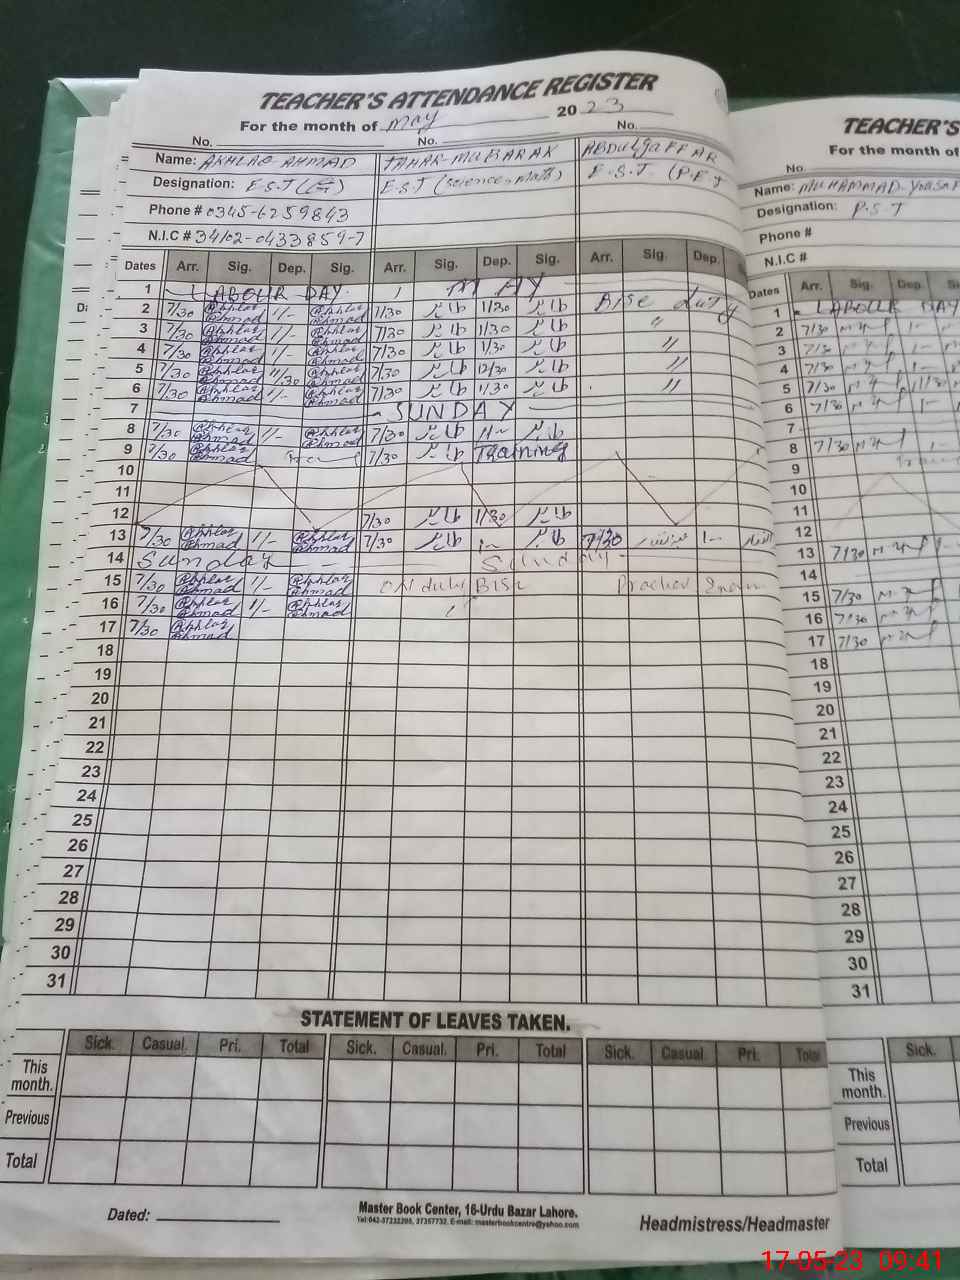 TEACHER'S ATTENDANCE REGISTER
For the month of May 2023
No. No. No.
Name: AKHLAQ AHMAD TAHAR-MUBARAK ABDUL GAFFAR
Designation: E.S.T (G) E.S.T (Science, Math) E.S.T. (P.E.T
Phone # 0345-6259843
N.I.C # 34102-0433859-7
Dates Arr. Sig. Dep. Sig. Arr. Sig. Dep. Sig. Arr. Sig. Dep.
1 LABOUR DAY. MAY
2 7/30 Akhlaq Ahmad 1/- Akhlaq Ahmad 7/30 طاہر 1/30 طاہر Bise duty
3 7/30 Akhlaq Ahmad 1/- Akhlaq Ahmad 7/30 طاہر 1/30 طاہر "
4 7/30 Akhlaq Ahmad 1/- Akhlaq Ahmad 7/30 طاہر 1/30 طاہر "
5 7/30 Akhlaq Ahmad 11/30 Akhlaq Ahmad 7/30 طاہر 12/30 طاہر "
6 7/30 Akhlaq Ahmad 1/- Akhlaq Ahmad 7/30 طاہر 1/30 طاہر "
7 SUNDAY
8 7/30 Akhlaq Ahmad 1/- Akhlaq Ahmad 7/30 طاہر 1/- طاہر
9 7/30 Akhlaq Ahmad 7/30 طاہر Training
10
11
12 7/30 طاہر 1/30 طاہر
13 7/30 Akhlaq Ahmad 1/- Akhlaq Ahmad 7/30 طاہر 1- طاہر 7/30 1-
14 Sunday Sunday
15 7/30 Akhlaq Ahmad 1/- Akhlaq Ahmad ON duty BISE
16 7/30 Akhlaq Ahmad 1/- Akhlaq Ahmad "
17 7/30 Akhlaq Ahmad
18
19
20
21
22
23
24
25
26
27
28
29
30
31
STATEMENT OF LEAVES TAKEN.
Sick. Casual. Pri. Total Sick. Casual. Pri. Total Sick. Casual. Pri. Total
This month.
Previous
Total
Dated:
Master Book Center, 16-Urdu Bazar Lahore.
Tel:042-37232298, 37357732, E-mail: masterbookcentre@yahoo.com
Headmistress/Headmaster
TEACHER'S
For the month of
No.
Name: MUHAMMAD-Yousaf
Designation: P.S.T
Phone #
N.I.C #
Dates Arr. Sig. Dep.
1 LABOUR DAY
2 7/30 1-
3 7/30 1-
4 7/30 1-
5 7/30 11/30
6 7/30 1-
7
8 7/30 1-
9
10
11
12
13 7/30 1-
14
15 7/30
16 7/30
17 7/30
18
19
20
21
22
23
24
25
26
27
28
29
30
31
Sick.
This month.
Previous
Total
17-05-23 09:41